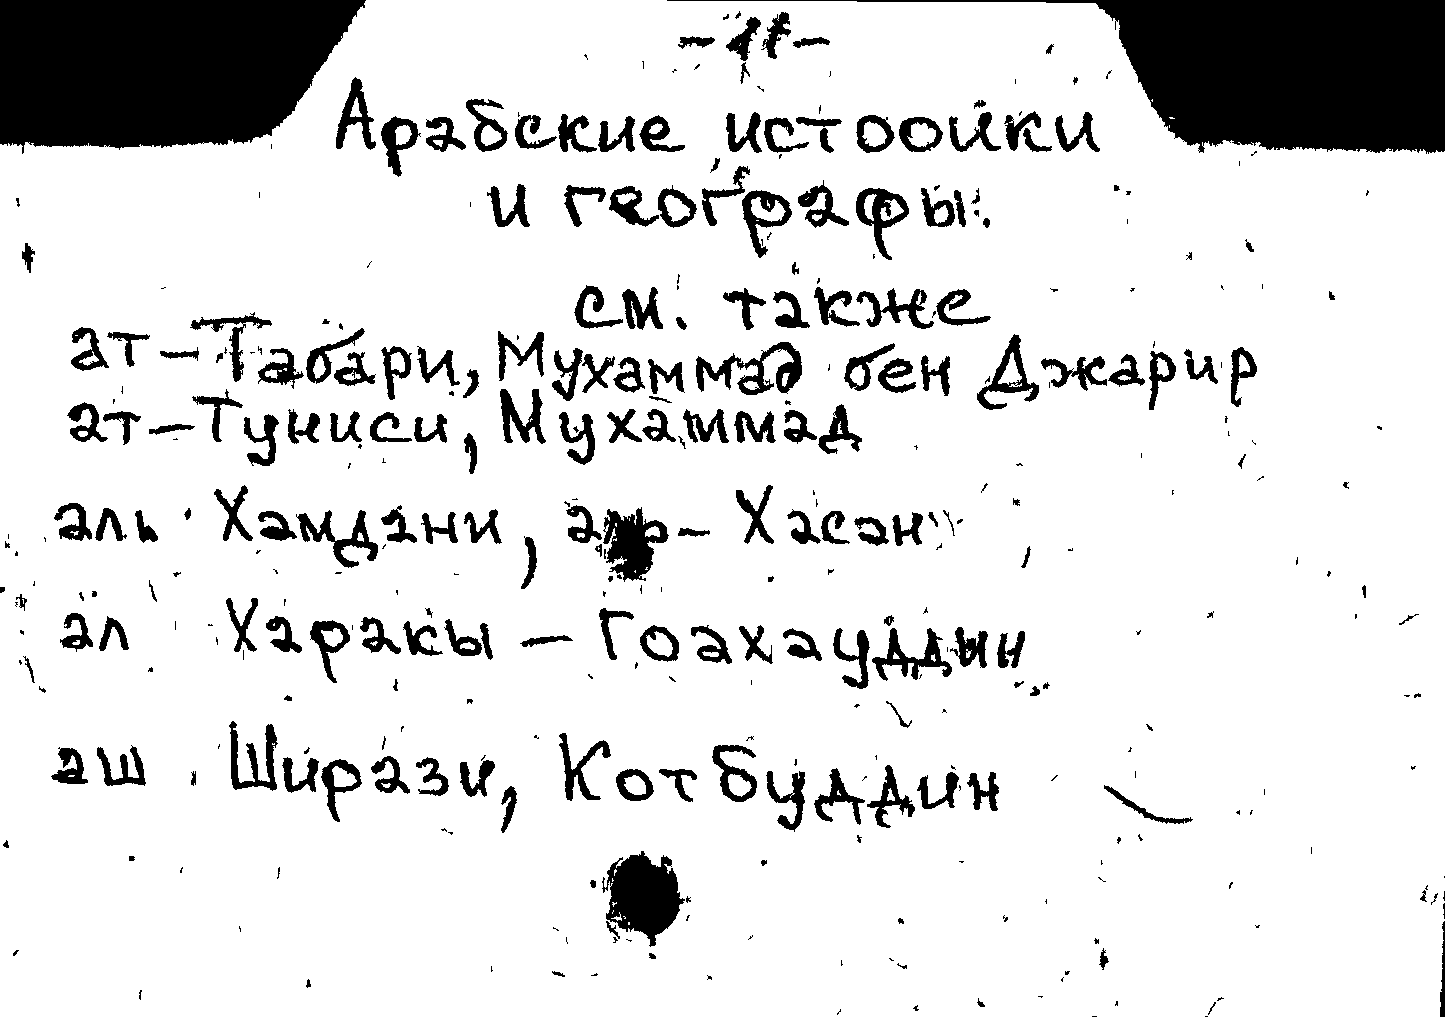 -11-
Арабские истооики
и географы.
см. также
ат-Табари, Мухаммад бен Джарир
ат-Туниси, Мухаммад
аль Хамдани, аль- Хасан
ал Харакы - Гоахауддын
аш Ширази, Котбуддин